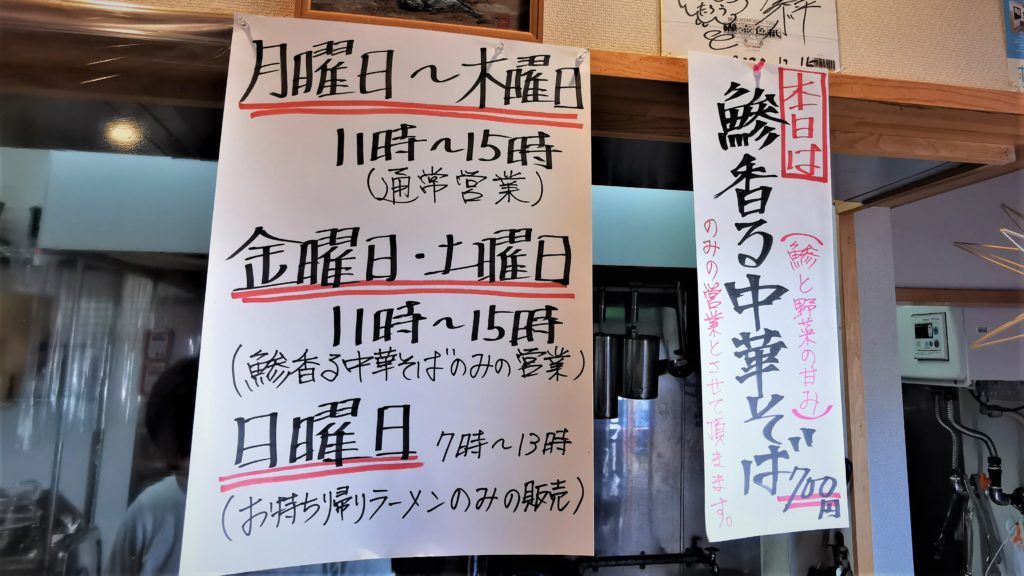 月曜日～木曜日
11時～15時
(通常営業)
金曜日・土曜日
11時～15時
(鯵香る中華そばのみの営業)
日曜日 7時～13時
(お持ち帰りラーメンのみの販売)
本日は
鯵香る中華そば 700円
(鯵と野菜の甘み)
のみの営業とさせて頂きます。